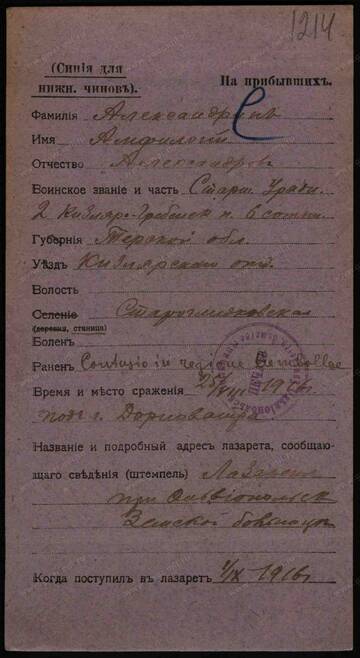 1214
(Синія для
нижн. чиновъ).
На прибывшихъ.
Фамилія Александринъ
Имя Амфилогій
Отчество Александров
Воинское званіе и часть Старш. Уряд.
2 Кизляро-Гребенск п. 6 сотни
Губернія Терской обл.
Уѣздъ Кизлярскаго отд.
Волость
Селеніе Старогладковская
(деревня, станица)
Боленъ
Раненъ Contusio in regione
Время и мѣсто сраженія 25/VIII 1916г
подъ г.
Названіе и подробный адресъ лазарета, сообщаю-
щаго свѣдѣнія (штемпель) Лазаретъ
при Ольвіопольск
Земской больницѣ
Когда поступилъ въ лазаретъ 1/IX 1916г